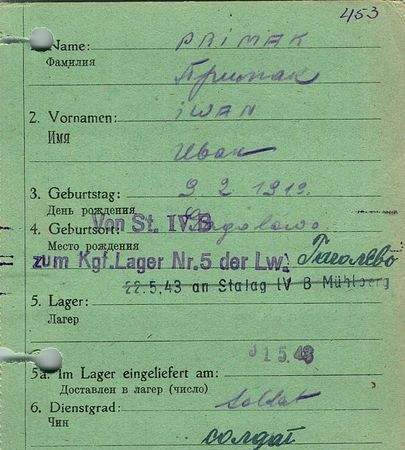 453
1. Name: PRIMAK
Фамилия Примак
2. Vornamen: IWAN
Имя Иван
3. Geburtstag: 9 2 1919.
День рождения
Von St. IV B
4. Geburtsort:
Место рождения Гаголево
zum Kgf.Lager Nr.5 der Lw.
22.5.43 an Stalag IV B Mühlberg
5. Lager:
Лагер
1 5.43
5a. Im Lager eingeliefert am:
Доставлен в лагер (число)
6. Dienstgrad: Soldat
Чин солдат